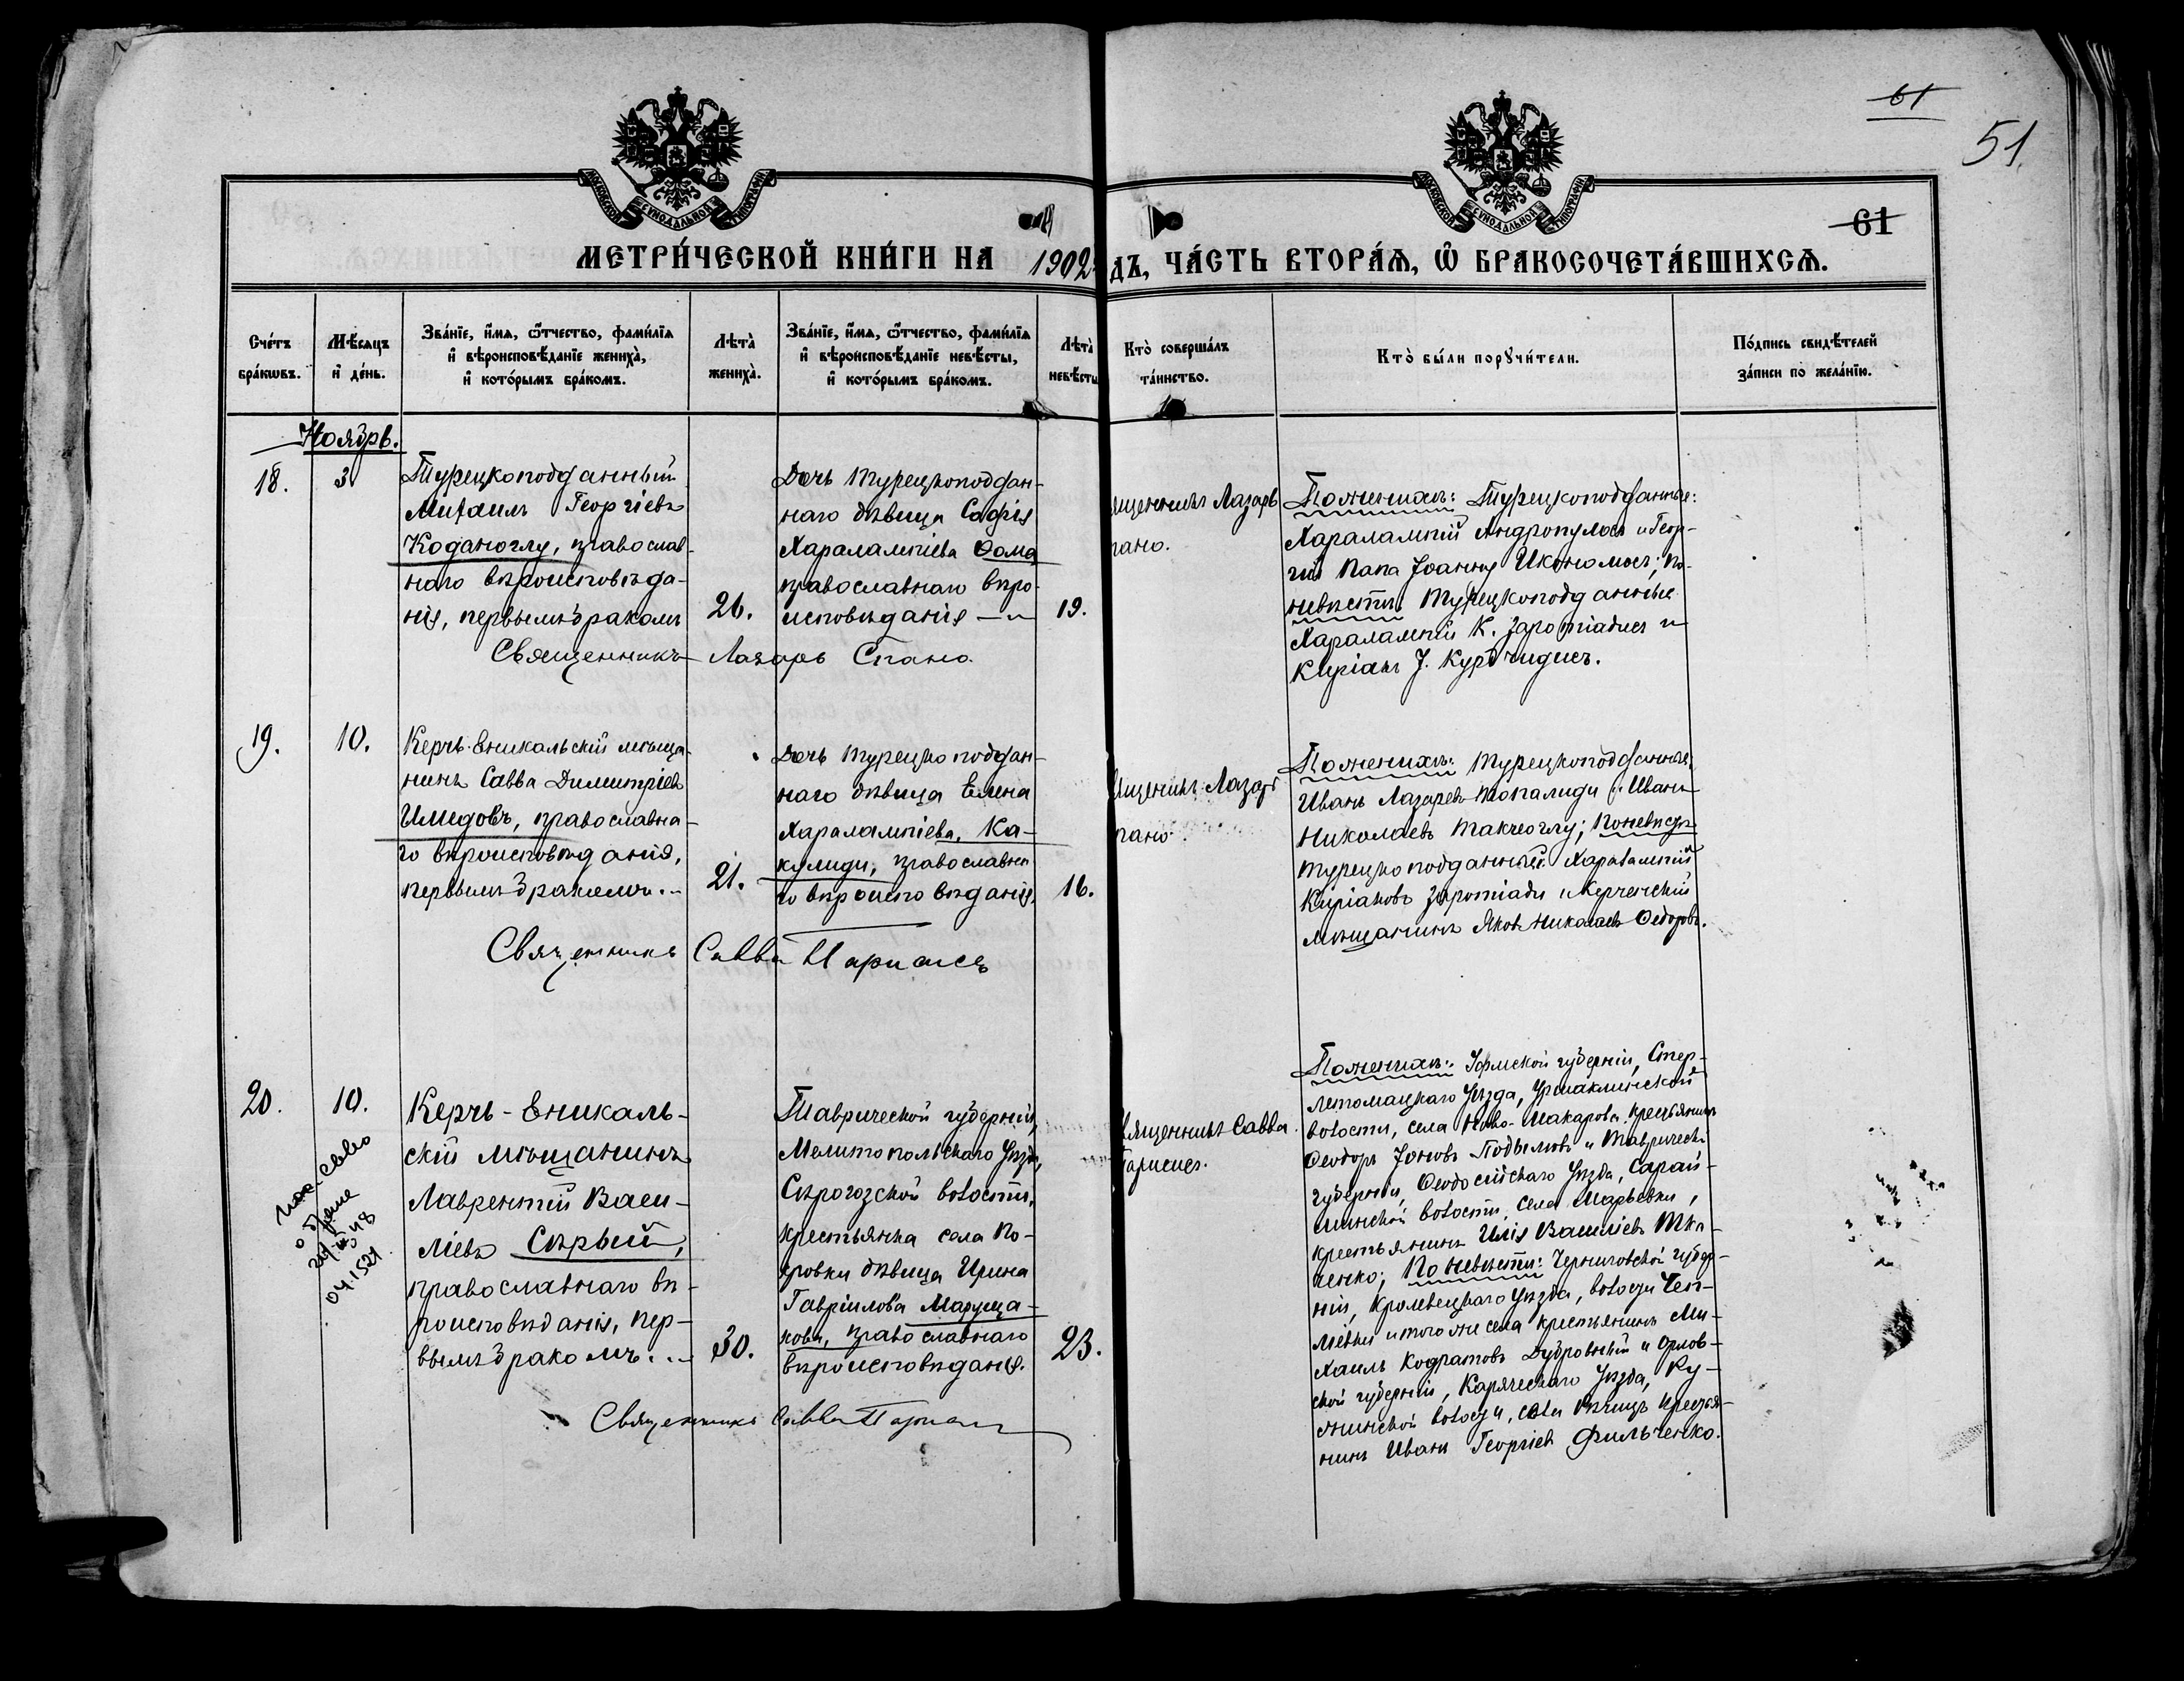 61
51.
МОСКОВСКОЙ СѴНОДАЛЬНОЙ ТИПОГРАФІИ
МОСКОВСКОЙ СѴНОДАЛЬНОЙ ТИПОГРАФІИ
61
МЕТРИ́ЧЕСКОЙ КНИ́ГИ НА 1902
ДЪ, ЧА́СТЬ ВТОРА́Ѧ, Ѽ БРАКОСОЧЕТА́ВШИХСѦ.
Сче́тъ бра́кѡвъ.
Мѣ́сяцъ и҆ де́нь.
Зва́нїе, и҆́мѧ, ѻ҆́тчество, фами́лїѧ и҆ вѣроисповѣ́данїе жениха̀, и҆ кото́рымъ бра́комъ.
Лѣта̀ жениха̀.
Зва́нїе, и҆́мѧ, ѻ҆́тчество, фами́лїѧ и҆ вѣроисповѣ́данїе невѣ́сты, и҆ кото́рымъ бра́комъ.
Лѣта̀ невѣ́сты
Кто̀ соверша́лъ та́инство.
Кто̀ бы́ли порꙋчи́тели.
По́дпись свидѣ́телей за́писи по жела́нїю.
Ноябрь.
18.
3
Турецкоподданный
Михаилъ Георгіевъ
Коданоглу, православ-
наго вѣроисповѣда-
нія, первымъ бракомъ
26.
Дочь турецкоподдан-
наго дѣвица Софія
Харалампіева Ѳома
православнаго вѣро-
исповѣданія
19.
Священникъ Лазарь Спано.
ященникъ Лазарь
пано.
По женихѣ: Турецкоподданные:
Харалампій Андропулосъ и Геор-
гій Папа Іоанну Икономосъ; по
невѣстѣ: турецкоподданные
Харалампій К. и
Киріакъ І. Куртчидисъ.
19.
10.
Керчь-Еникальскій мѣща-
нинъ Савва Димитріевъ
Имедовъ, православна-
го вѣроисповѣданія,
первымъ бракомъ.
21.
Дочь турецкоподдан-
наго дѣвица Елена
Харалампіева, Ка-
кулиди, православна
го вѣроисповѣданія.
16.
Священникъ Савва Парисисъ
ященникъ Лазарь
пано.
По женихѣ: турецкоподданные,
Иванъ Лазаревъ Топалиди и Иванъ
Николаевъ Такчеоглу; по невѣстѣ
турецкоподданный Харалампій
Киріаковъ и Керченскій
мѣщанинъ Яковъ Николаевъ Ѳедоровъ.
20.
10.
о браке
Керчь-Еникаль-
скій мѣщанинъ
Лаврентій Васи-
ліевъ Сѣрый,
православнаго вѣ-
роисповѣданія, пер-
вымъ бракомъ.
30.
Таврической губерніи,
Мелитопольскаго уѣзда,
Сѣрогозской волости,
крестьянка села По-
кровки дѣвица Ирина
Гавріилова Маруща-
кова, православнаго
вѣроисповѣданія.
23.
Священникъ Савва Парисисъ
вященникъ Савва
Парисисъ.
По женихѣ: Уфимской губерніи, Стер-
летомацкаго уѣзда, Уршакминской
волости, села Ново-Макарова крестьянинъ
Ѳеодоръ Іоновъ Подымовъ и Таврической
губерніи, Ѳеодосійскаго уѣзда, Сарай-
минской волости, села Марьевки,
крестьянинъ Илія Василіевъ Тка-
ченко; По невѣстѣ: Черниговской губер-
ніи, Кролевецкаго уѣзда, волости
и того же села крестьянинъ Ми-
хаилъ Кодратовъ Дубровный и Орлов-
ской губерніи, Карячеснаго уѣзда,
волости, села крестья-
нинъ Иванъ Георгіевъ Фильченко.